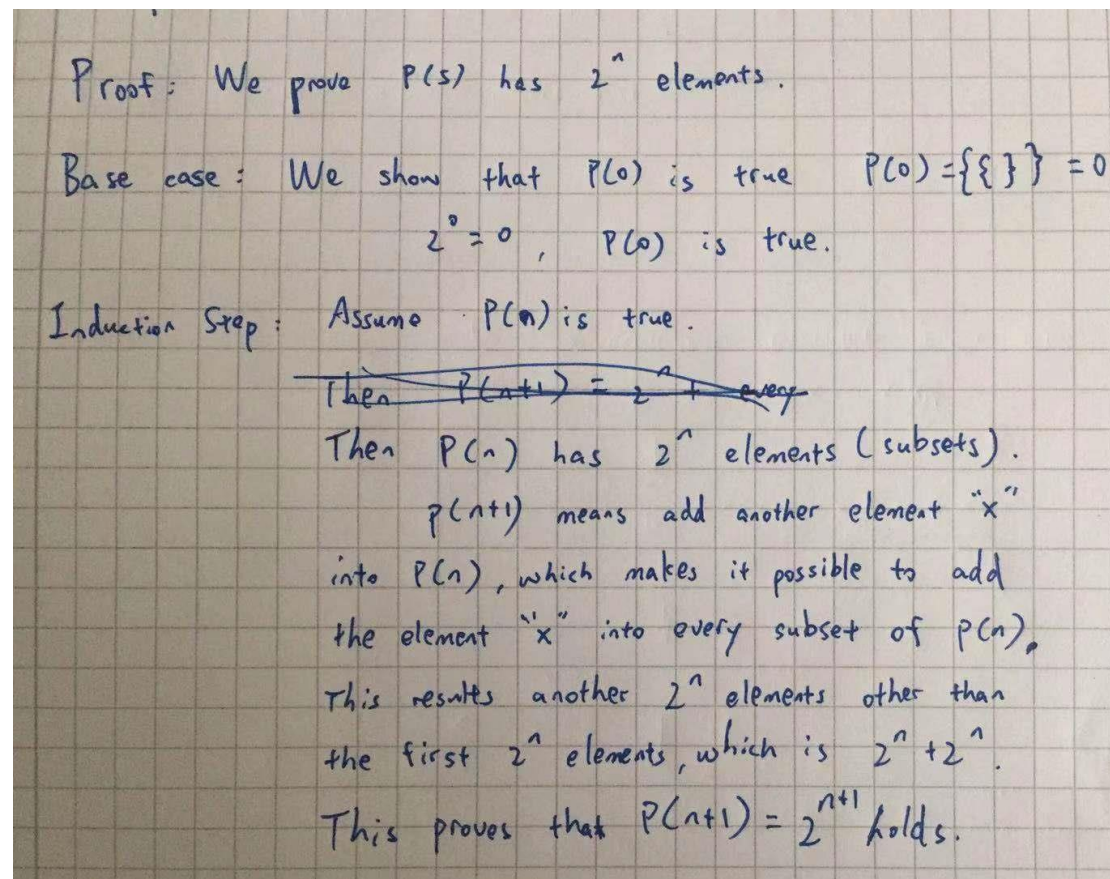 Proof: We prove P(S) has 2^n elements.
Base case: We show that P(0) is true P(0) = {{ }} = 0
2^0 = 0, P(0) is true.
Induction Step: Assume P(n) is true.
Then P(n+1) = 2^n + every
Then P(n) has 2^n elements (subsets).
P(n+1) means add another element "x"
into P(n), which makes it possible to add
the element "x" into every subset of P(n).
This results another 2^n elements other than
the first 2^n elements, which is 2^n + 2^n.
This proves that P(n+1) = 2^{n+1} holds.